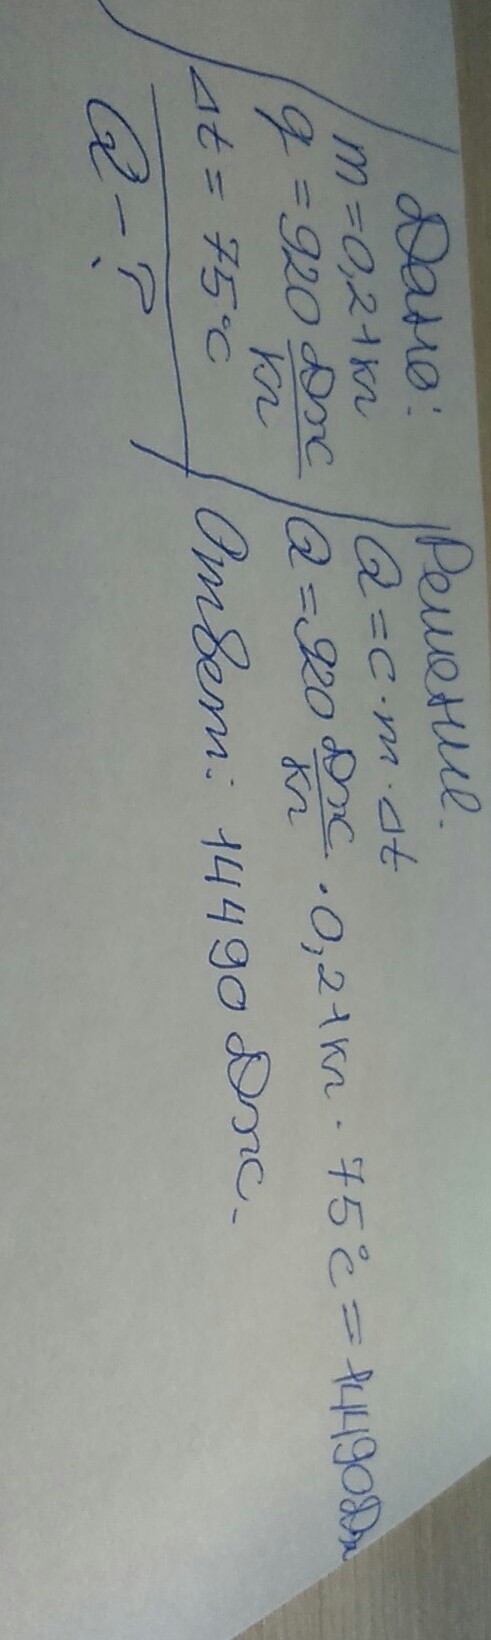 Дано:
m = 0,21 кг
q = 920 Дж/кг
Δt = 75°C
Q - ?
Решение.
Q = c · m · Δt
Q = 920 Дж/кг · 0,21 кг · 75°C = 14490 Дж
Ответ: 14490 Дж.